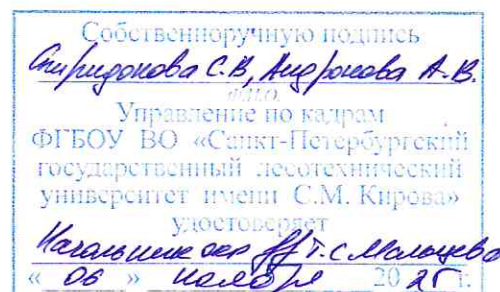 Собственноручную подпись
Спиридонова С.В, Андронова А.В.
Ф.И.О.
Управление по кадрам
ФГБОУ ВО «Санкт-Петербургский
государственный лесотехнический
университет имени С.М. Кирова»
удостоверяет
Начальник Т.С Мальцева
« 06 » ноября 20 25 г.